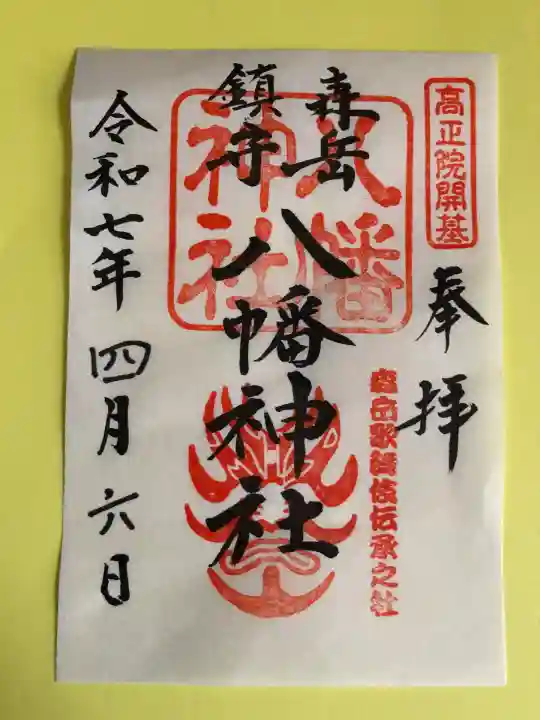 高正院開基
奉拝
森岳歌舞伎伝承之社
八幡
神社
森岳
鎮守
八幡神社
令和七年四月六日